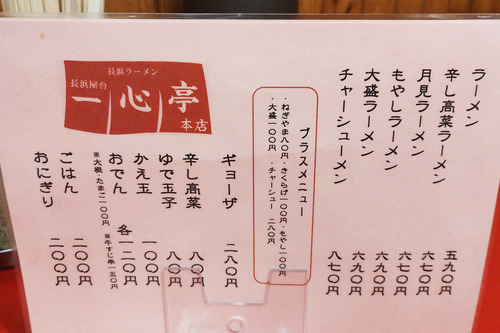 ラーメン 五九〇円
辛し高菜ラーメン 六七〇円
月見ラーメン 六七〇円
もやしラーメン 六九〇円
大盛ラーメン 六九〇円
チャーシューメン 八七〇円
プラスメニュー
・ねぎやま八〇円・きくらげ一〇〇円・もやし一〇〇円
・大盛一〇〇円 ・チャーシュー 二八〇円
ギョーザ 二八〇円
辛し高菜 八〇円
ゆで玉子 八〇円
かえ玉 一〇〇円
おでん 各一二〇円
※大根 たまご一〇〇円 ※牛すじ串一五〇円
ごはん 二〇〇円
おにぎり 二〇〇円
長浜ラーメン
長浜屋台
一心亭
本店